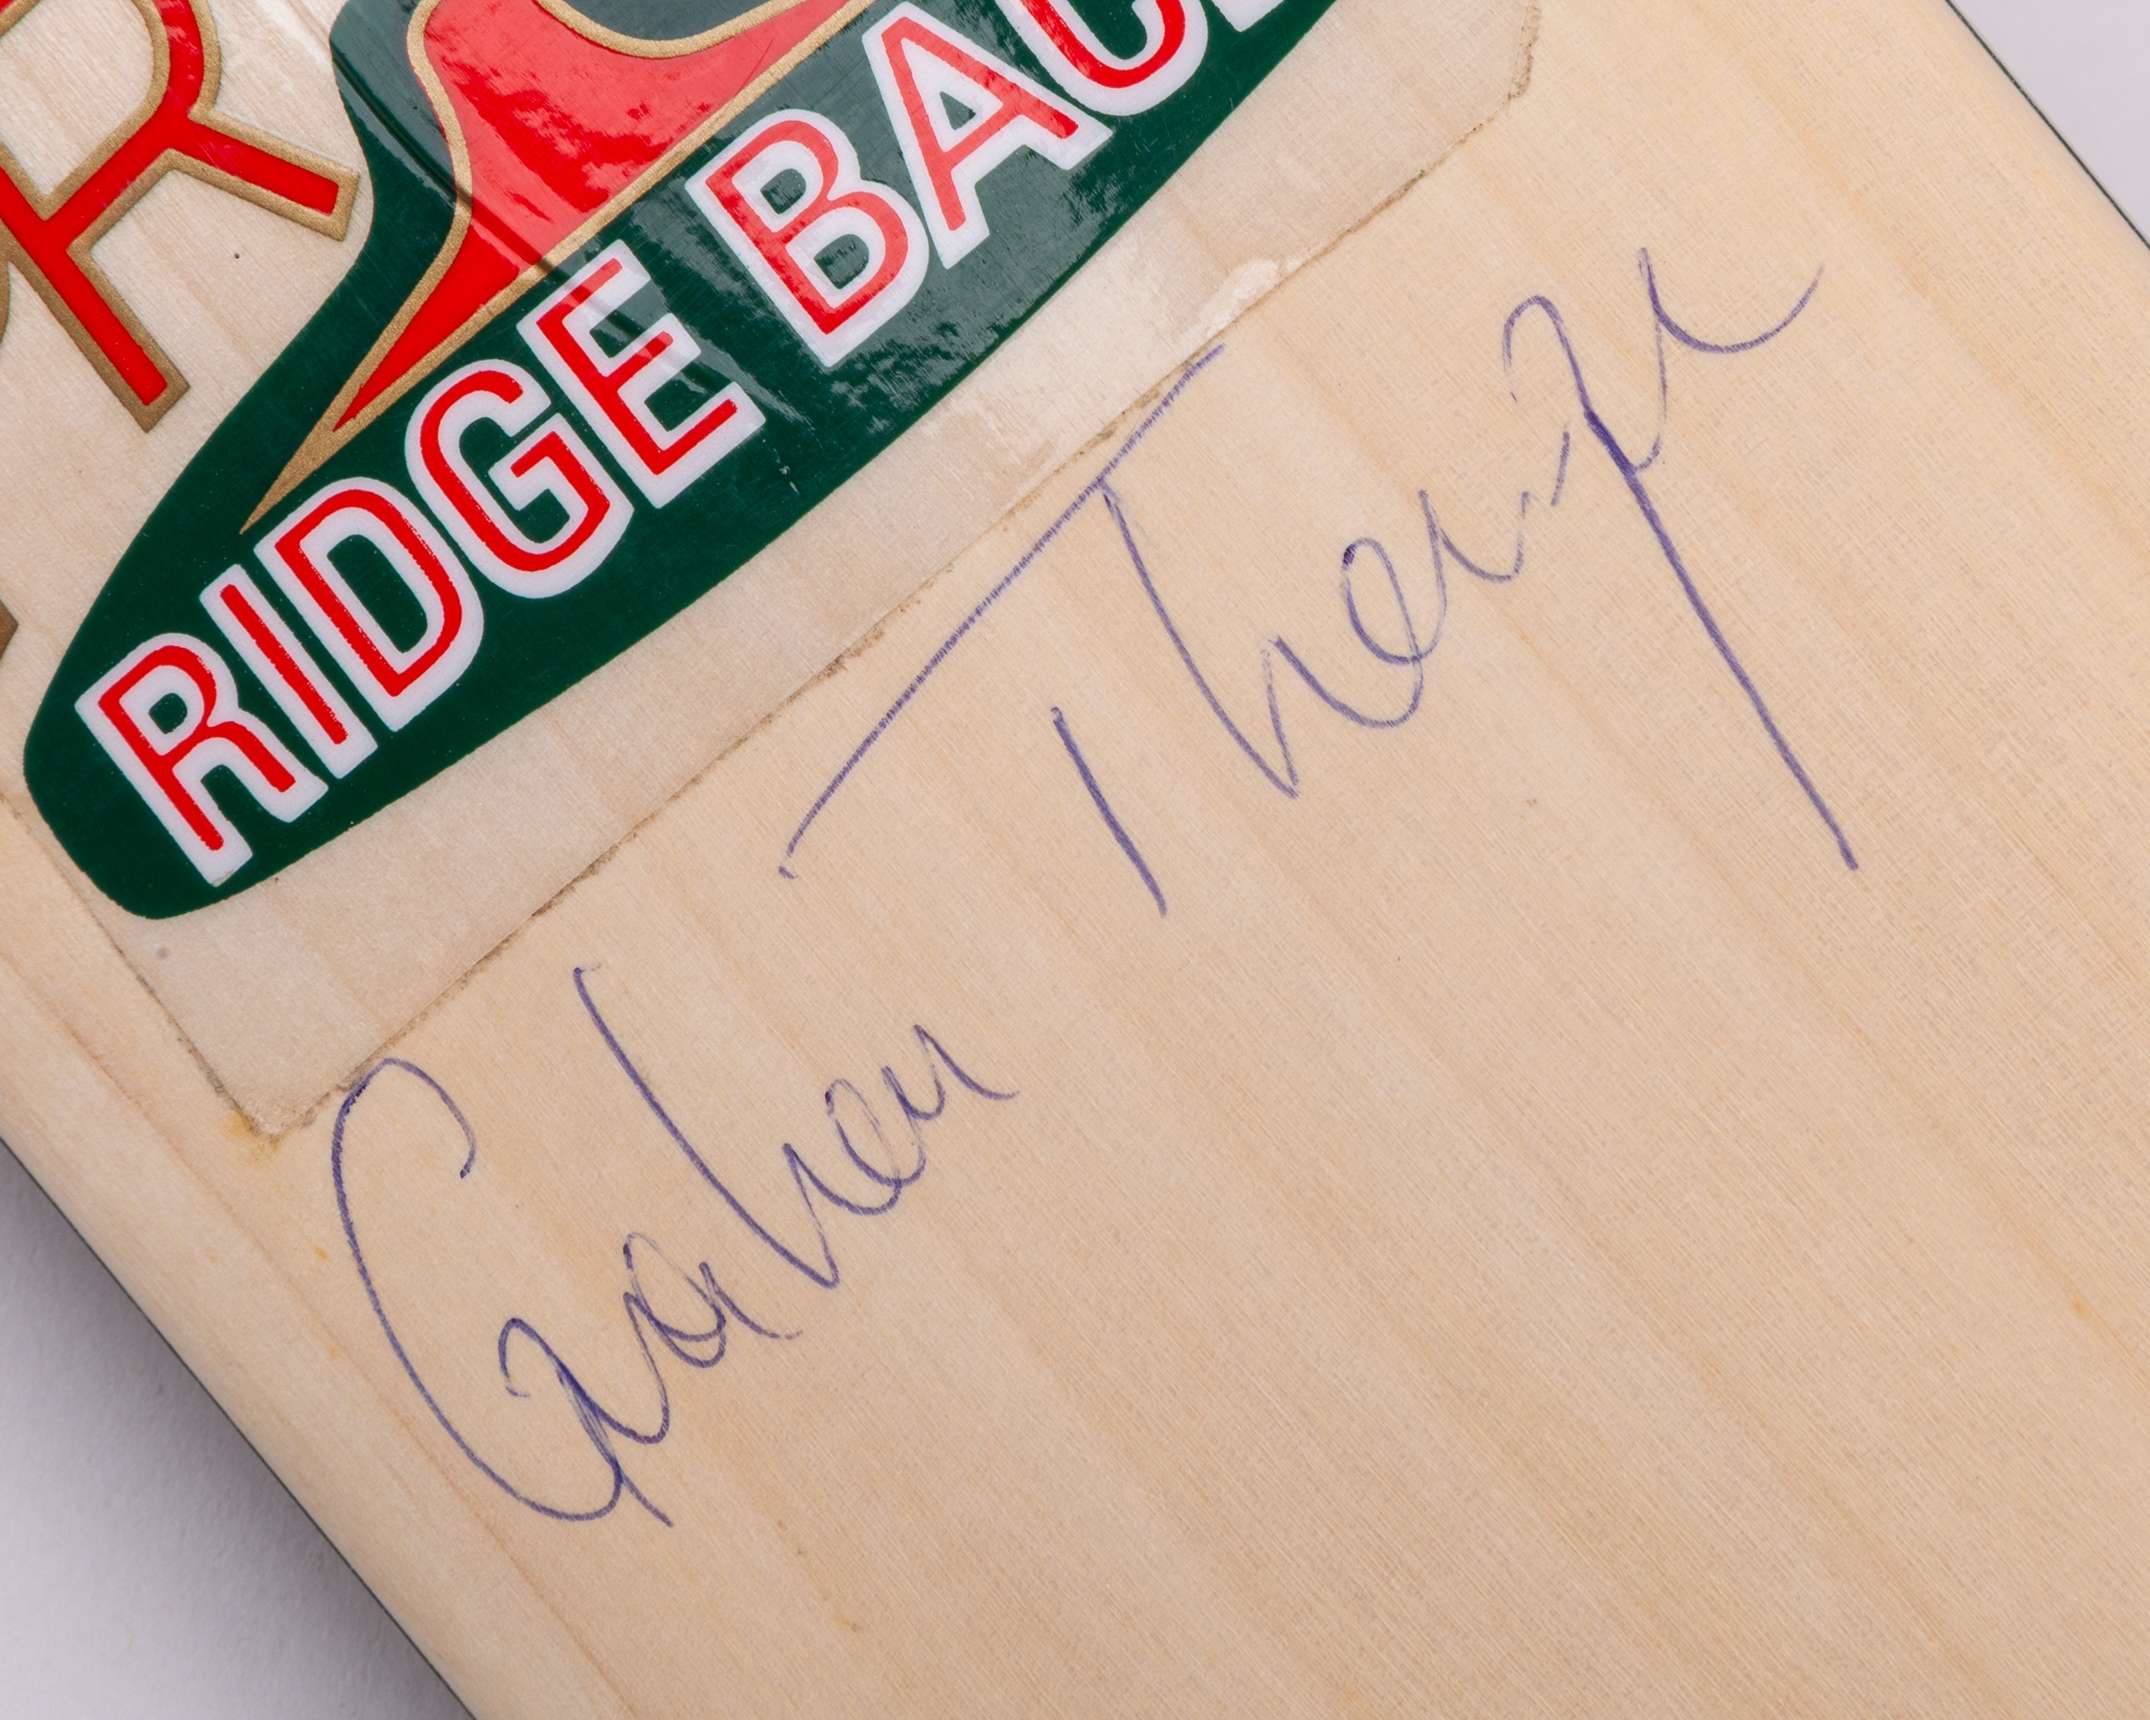 RIDGE BACK
Graham Thorpe